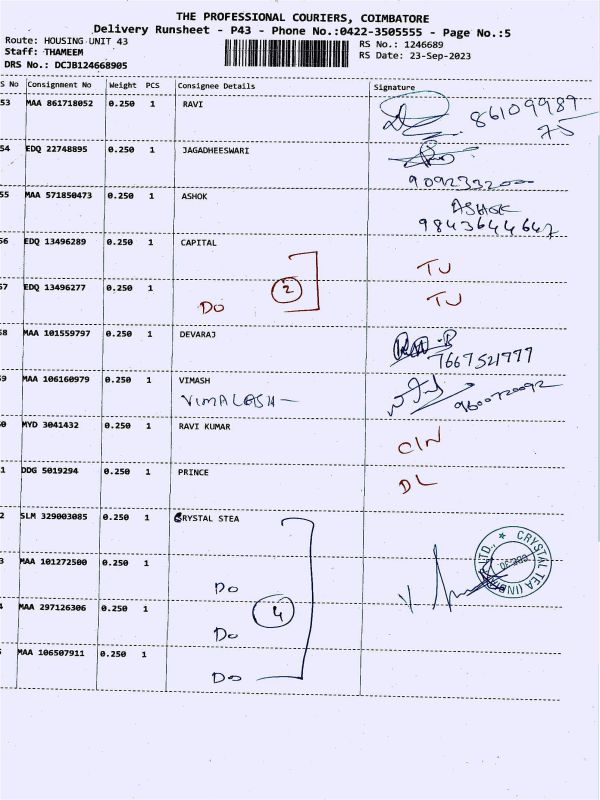 THE PROFESSIONAL COURIERS, COIMBATORE
Delivery Runsheet - P43 - Phone No.:0422-3505555 - Page No.:5
Route: HOUSING UNIT 43
RS No.: 1246689
Staff: THAMEEM
RS Date: 23-Sep-2023
DRS No.: DCJB124668905
S No Consignment No Weight PCS Consignee Details Signature
53 MAA 861718052 0.250 1 RAVI 8610998975
54 EDQ 22748895 0.250 1 JAGADHEESWARI
9092332000
55 MAA 571850473 0.250 1 ASHOK ASHOK
9843644647
56 EDQ 13496289 0.250 1 CAPITAL TU
57 EDQ 13496277 0.250 1 Do 2 TU
58 MAA 101559797 0.250 1 DEVARAJ
7667521777
59 MAA 106160979 0.250 1 VIMASH
VIMALESH 9600720092
0 MYD 3041432 0.250 1 RAVI KUMAR CIN
1 DDG 5019294 0.250 1 PRINCE DL
2 SLM 329003085 0.250 1 CRYSTAL STEA
3 MAA 101272500 0.250 1 Do
4 MAA 297126306 0.250 1 Do 4
MAA 106507911 0.250 1 Do
CRYSTAL TEA (INDIA) LTD.,